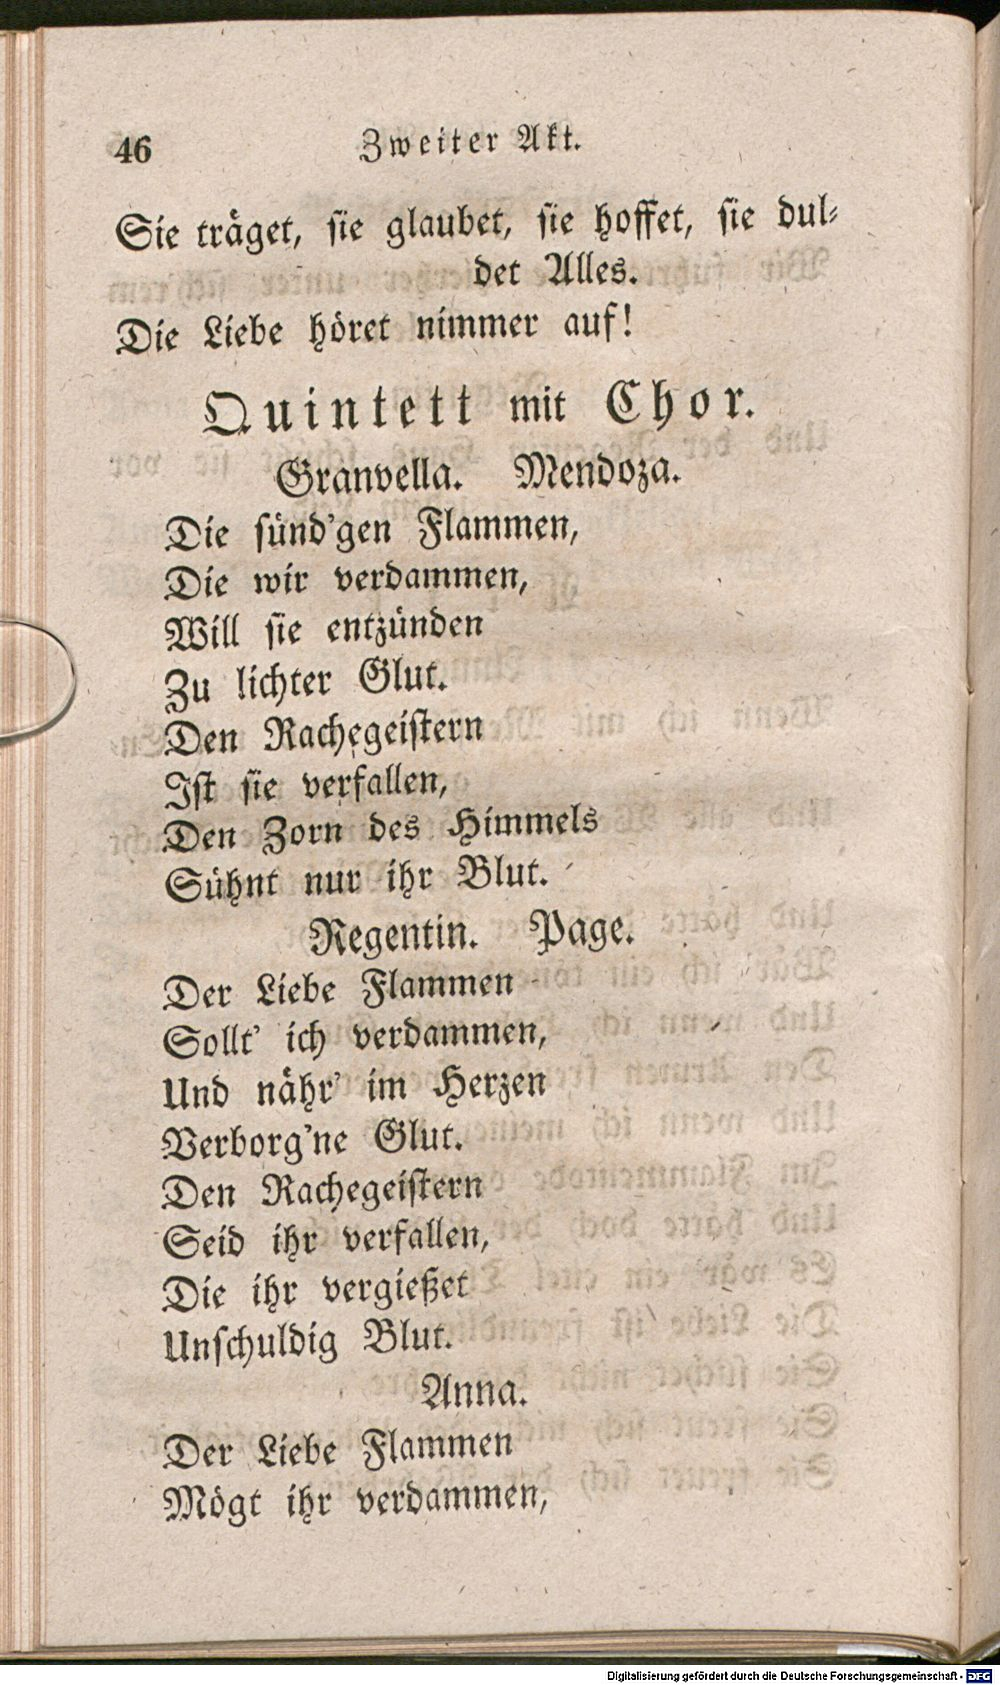 46 Zweiter Akt.
Sie träget, sie glaubet, sie hoffet, sie dul-
det Alles.
Die Liebe höret nimmer auf!
Quintett mit Chor.
Granvella. Mendoza.
Die sünd'gen Flammen,
Die wir verdammen,
Will sie entzünden
Zu lichter Glut.
Den Rachegeistern
Ist sie verfallen,
Den Zorn des Himmels
Sühnt nur ihr Blut.
Regentin. Page.
Der Liebe Flammen
Sollt' ich verdammen,
Und nähr' im Herzen
Verborg'ne Glut.
Den Rachegeistern
Seid ihr verfallen,
Die ihr vergießet
Unschuldig Blut.
Anna.
Der Liebe Flammen
Mögt ihr verdammen,
Digitalisierung gefördert durch die Deutsche Forschungsgemeinschaft - DFG